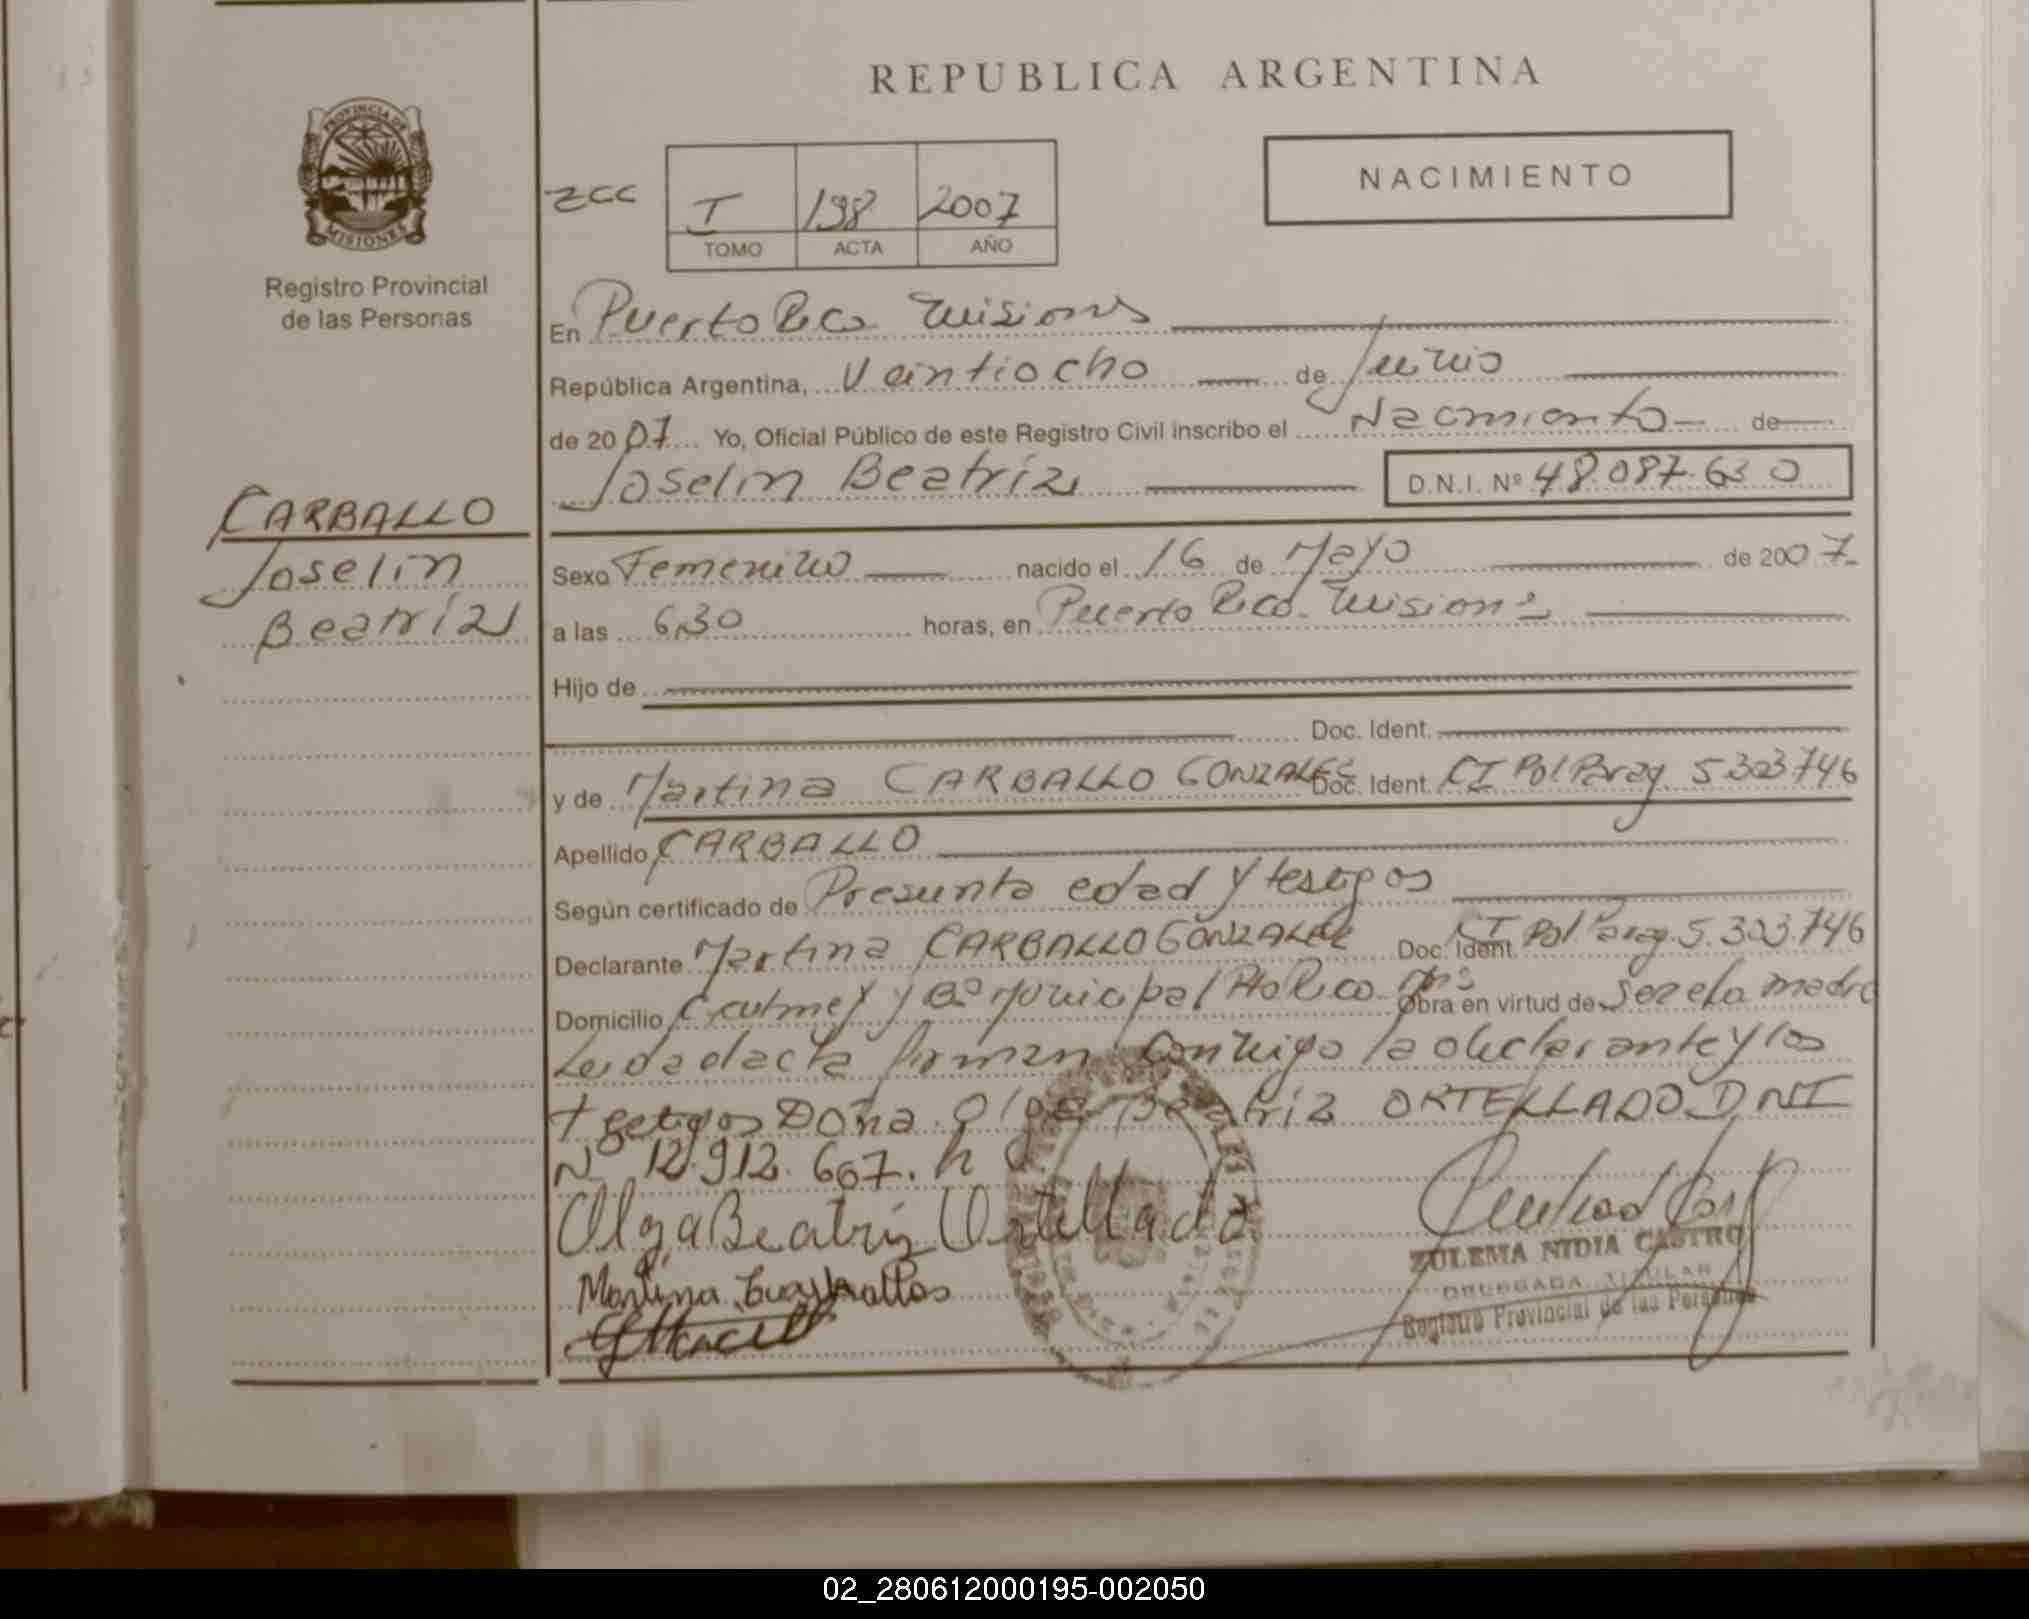 REPUBLICA ARGENTINA
PROVINCIA DE
MISIONES
Registro Provincial
de las Personas
zcc
I 198 2007
TOMO ACTA AÑO
NACIMIENTO
En Puerto Rico Misiones
República Argentina, Veintiocho de Junio
de 2007 Yo, Oficial Público de este Registro Civil inscribo el Nacimiento de
Joselin Beatríz D.N.I. Nº 48.087.630
CARBALLO
Joselin
Beatríz
Sexo Femenino nacido el 16 de Mayo de 2007
a las 6,30 horas, en Puerto Rico Misiones
Hijo de
Doc. Ident.
y de Martina CARBALLO GONZALEZ Doc. Ident. CI Pol Parag. 5.303.746
Apellido CARBALLO
Según certificado de Presunta edad y testigos
Declarante Martina CARBALLO GONZALEZ Doc. Ident. CI Pol Parag. 5.303.746
Domicilio y Bº Municipal Pto Rico Mnes Obra en virtud de Ser ela madre
Leida el acta firman conmigo la declarante y los
testigos Doña Olga Beatríz ORTELLADO DNI
Nº 12.912.667. h
Olga Beatriz Ortellado
Martina
ZULEMA NIDIA CASTRO
DELEGADA TITULAR
Registro Provincial de las Personas
02_280612000195-002050